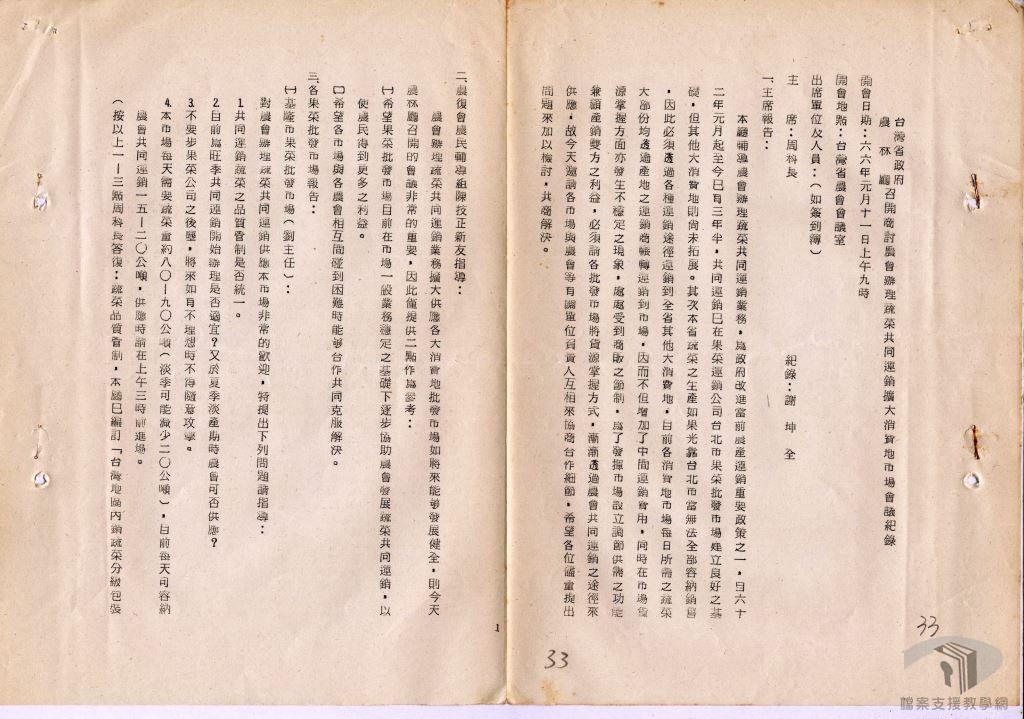 台灣省政府
農林廳召開商討農會辦理蔬菜共同運銷擴大消費地市場會議紀錄
開會日期：六六年元月十一日上午九時
開會地點：台灣省農會會議室
出席單位及人員：（如簽到簿）
主　席：周科長　紀錄：謝坤全
一、主席報告：
本廳輔導農會辦理蔬菜共同運銷業務，為政府改進當前農產運銷重要政策之一，自六十
二年元月起至今已有三年半，共同運銷已在果菜運銷公司台北市果菜批發市場建立良好之基
礎，但其他大消費地則尚未拓展。其次本省蔬菜之生產如果光靠台北市當無法全部容納銷售
，因此必須透過各種運銷途徑運銷到全省其他大消費地，目前各消費地市場每日所需之蔬菜
大部份均透過產地之運銷商輾轉運銷到市場，因而不但增加了中間運銷費用，同時在市場貨
源掌握方面亦發生不穩定之現象，處處受到商販之節制，為了發揮市場設立調節供需之功能
兼顧產銷雙方之利益，必須請各批發市場將貨源掌握方式，漸漸透過農會共同運銷之途徑來
供應，故今天邀請各市場與農會等有關單位負責人互相來協商合作細節，希望各位儘量提出
問題來加以檢討，共商解決。
二、農復會農民輔導組陳技正新友指導：
農會辦理蔬菜共同運銷業務擴大供應各大消費地批發市場如將來能够發展健全，則今天
農林廳召開的會議非常的重要，因此僅提供二點作為參考：
㈠希望果菜批發市場目前在市場一般業務穩定之基礎下逐步協助農會發展蔬菜共同運銷，以
使農民得到更多之利益。
㈡希望各市場與各農會相互間碰到困難時能够合作共同克服解決。
三、各果菜批發市場報告：
㈠基隆市果菜批發市場（劉主任）：
對農會辦理蔬菜共同運銷供應本市場非常的歡迎，特提出下列問題請指導：
1.共同運銷蔬菜之品質管制是否統一。
2.目前為旺季共同運銷開始辦理是否適宜？又於夏季淡產期時農會可否供應？
3.不要步果菜公司之後塵，將來如有不理想時不得隨意攻擊。
4.本市場每天需要蔬菜量約八〇—九〇公噸（淡季可能減少二〇公噸），目前每天可容納
農會共同運銷一五—二〇公噸，供應時請在上午三時前進場。
（按以上一—三點周科長答復：蔬菜品質管制，本廳已編訂「台灣地區內銷蔬菜分級包裝
1
33
33
檔案支援教學網